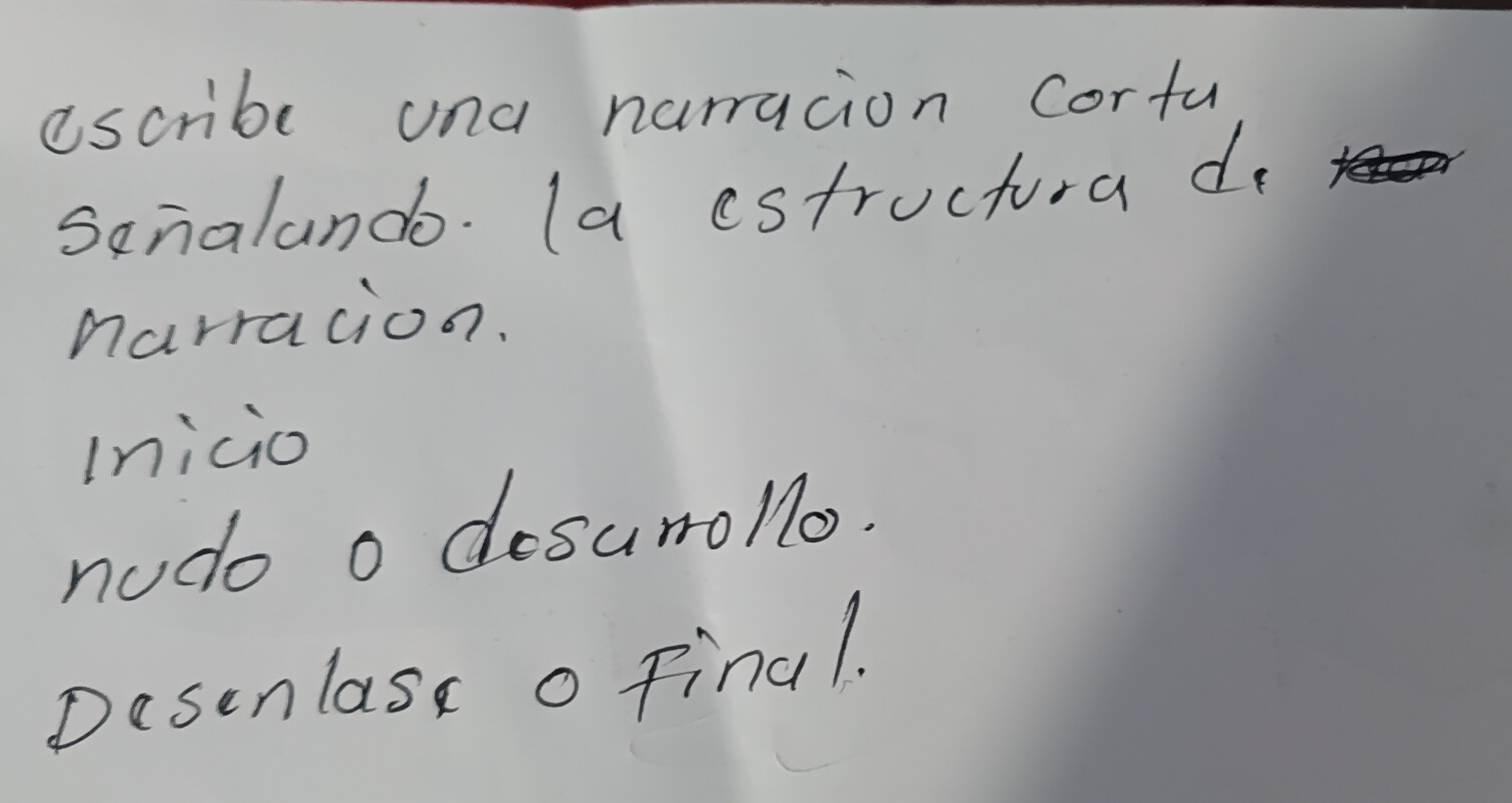 escribe una narracion corta
señalando. la estructura de
narracion.
Inicio
nudo o desarrollo.
Desenlase o Final.